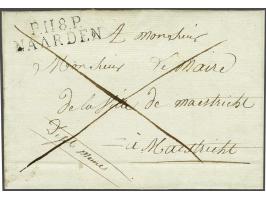 P.118.P.
NAARDEN
A monsieur
Monsieur Le Maire
de la Ville de maestricht
à Maestricht